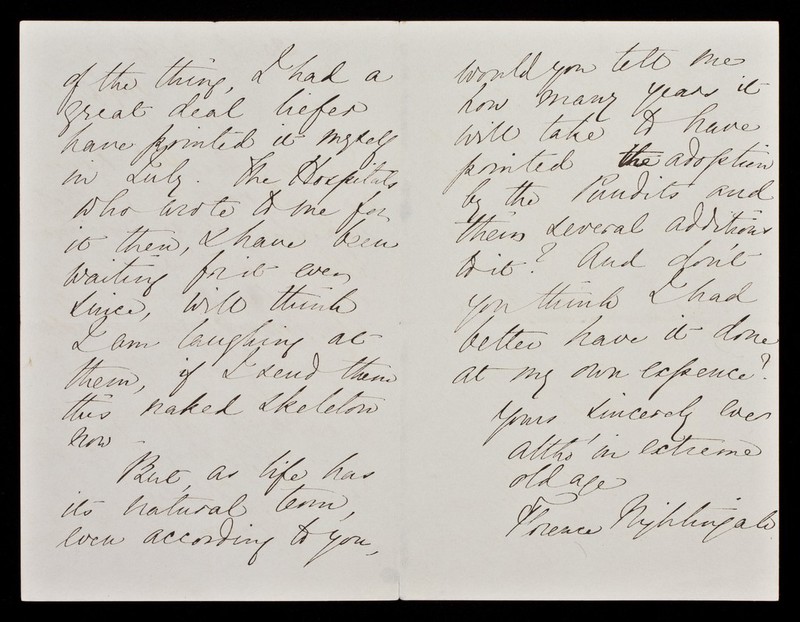 of the thing, I had a
great deal liefer
have printed it myself
in July. The Hospitals
who wrote to me for
it then, & have been
waiting for it ever
since, will think
I am laughing at
them, if I send them
this naked skeleton
now
But, as life has
its natural term,
even according to you,
would you tell me
how many years it
will take to have
printed the adoption
by the Pundits and
their several additions
to it? And don't
you think I had
better have it done
at my own expence?
Yours sincerely ever
altho' in extreme
old age
Florence Nightingale